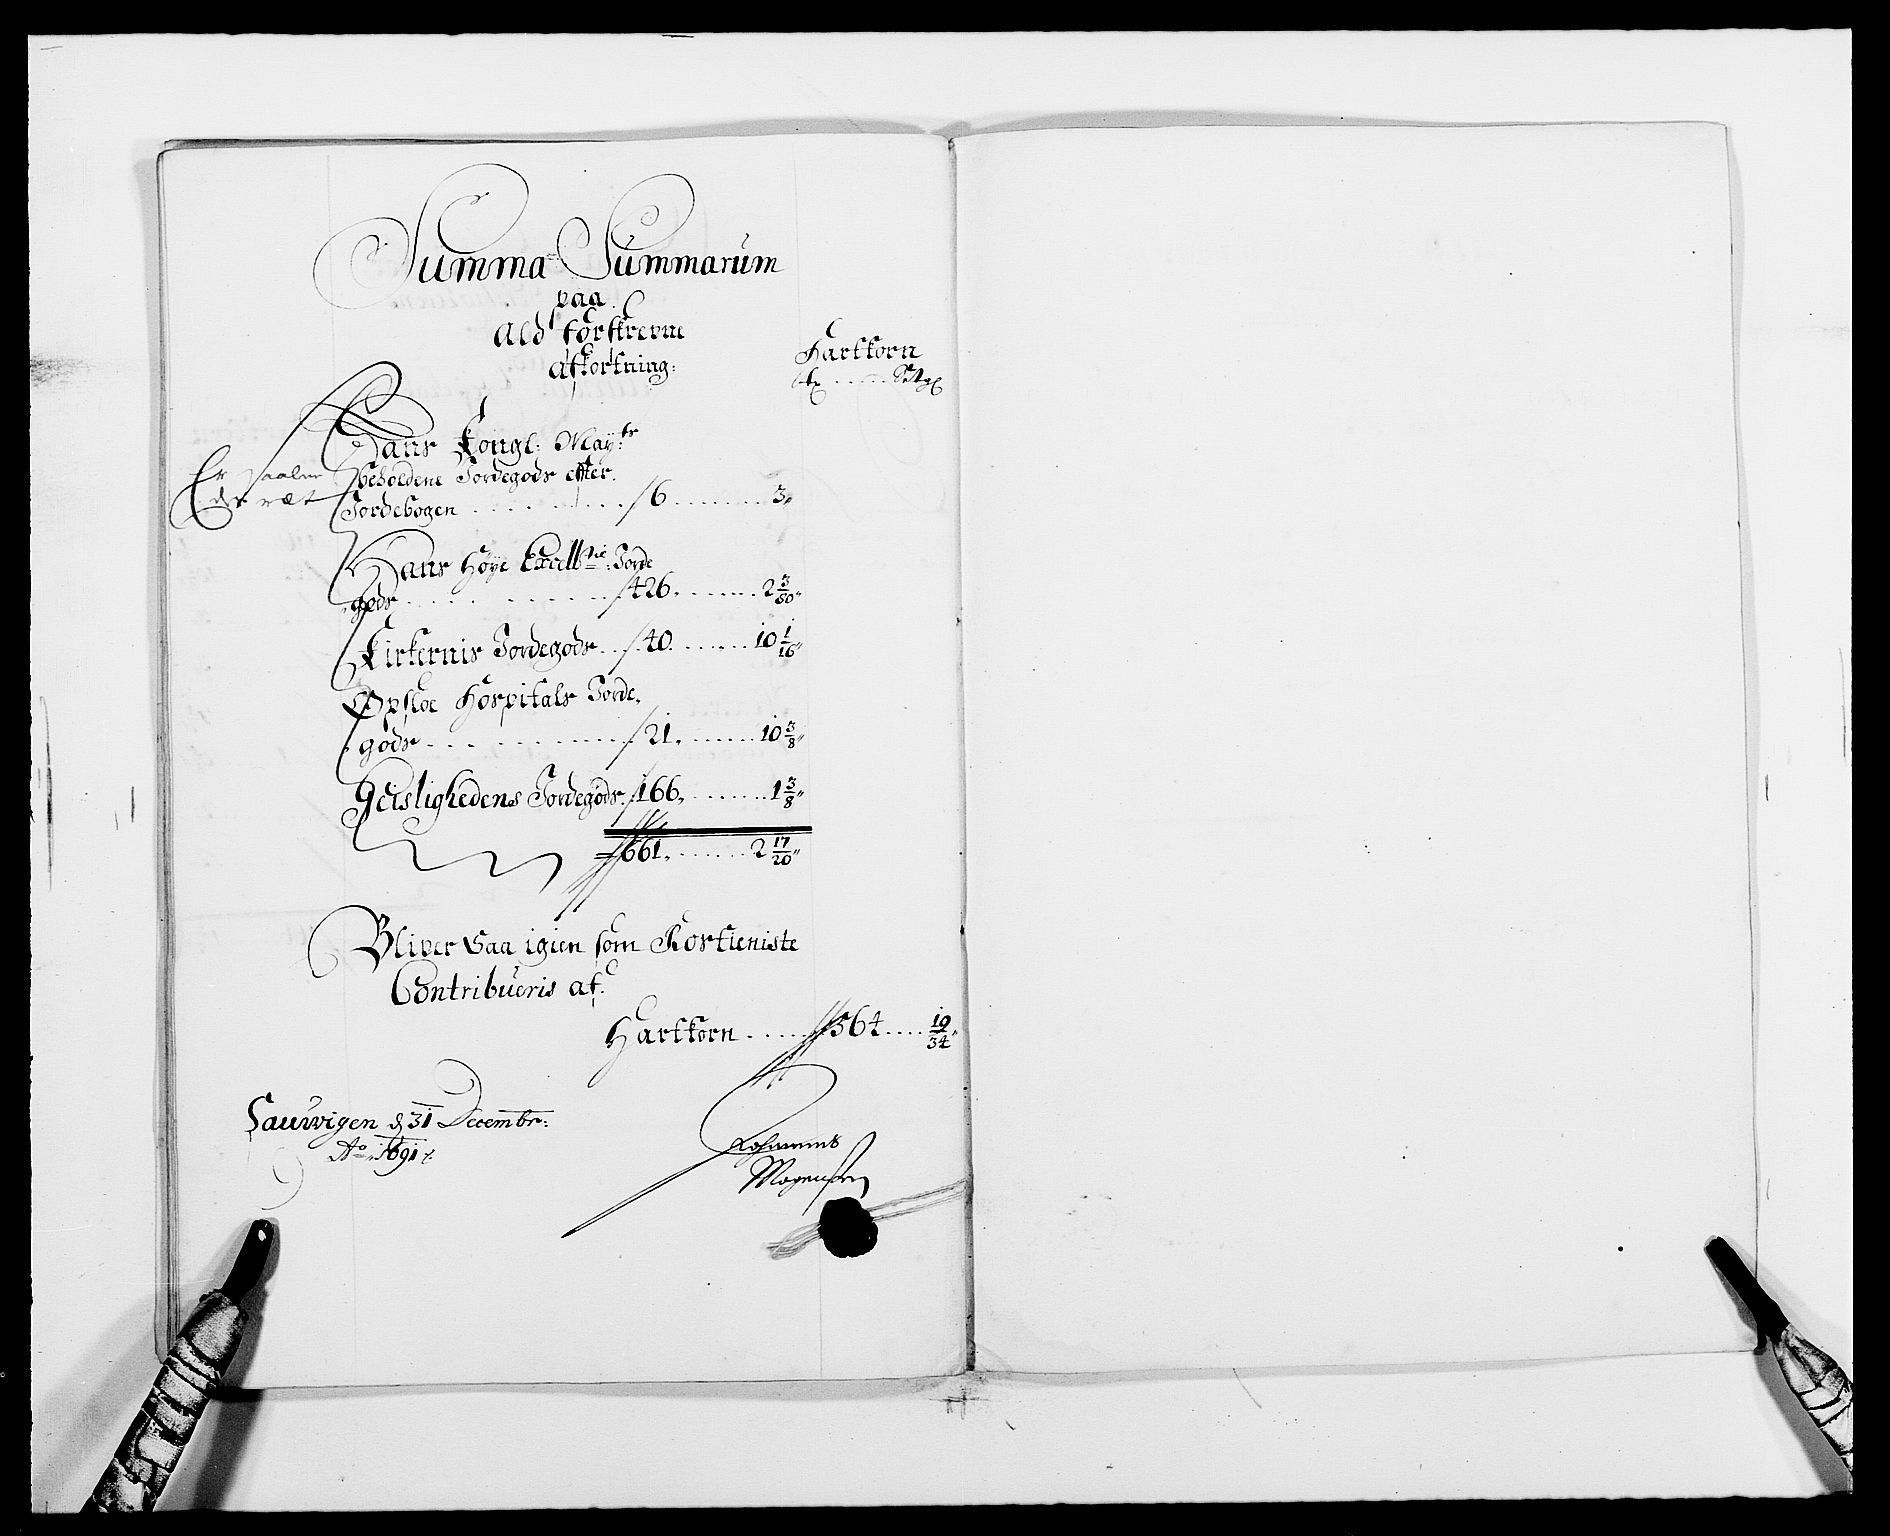 Summa Summarum
paa
Ald forskrevne
Afkortning:
Hartkorn
Hans Kongl: Mayts
beholdene Jordegods efter
Jordebogen . . . . 6 . . . . 3
Er saalen
det ræt
Hans Høye Excell: Jorde
gods . . . . 426 . . . . 2 3/80
Kirkernis Jordegods . . 40 . . . . 10 1/16
Opsloe Hospitals Jorde
gods . . . . 21 . . . . 10 3/8
Geislighedens Jordegods . 166 . . . . 1 3/8
661 . . . . 2 17/20
Bliver saa igien som Rostieniste
Contribueris af
Hartkorn . . . . 564 . . . . 19/34
Lauwigen d 31 Decembr:
Ao 1691
Johannes
Mogensen